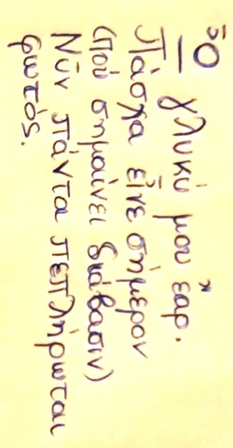 Ὦ γλυκύ μου ἔαρ.
Πάσχα εἶνε σήμερον
(ποὺ σημαίνει διάβασιν)
Νῦν πάντα πεπλήρωται
φωτός.